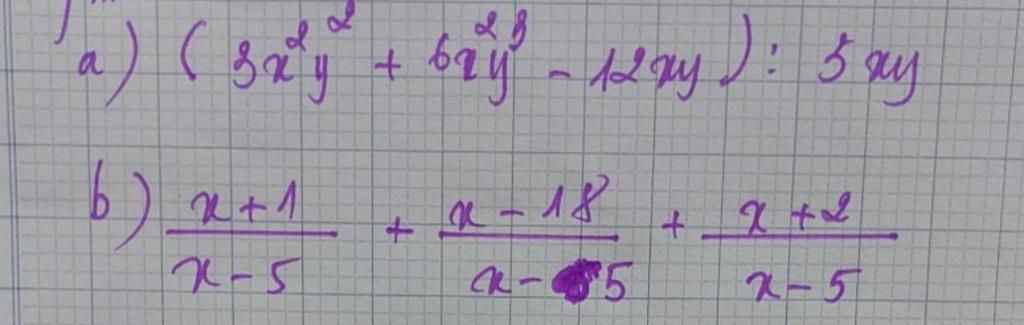 a) (3x²y² + 6x²y³ - 12xy) : 3xy
b) \frac{x+1}{x-5} + \frac{x-18}{x-5} + \frac{x+2}{x-5}